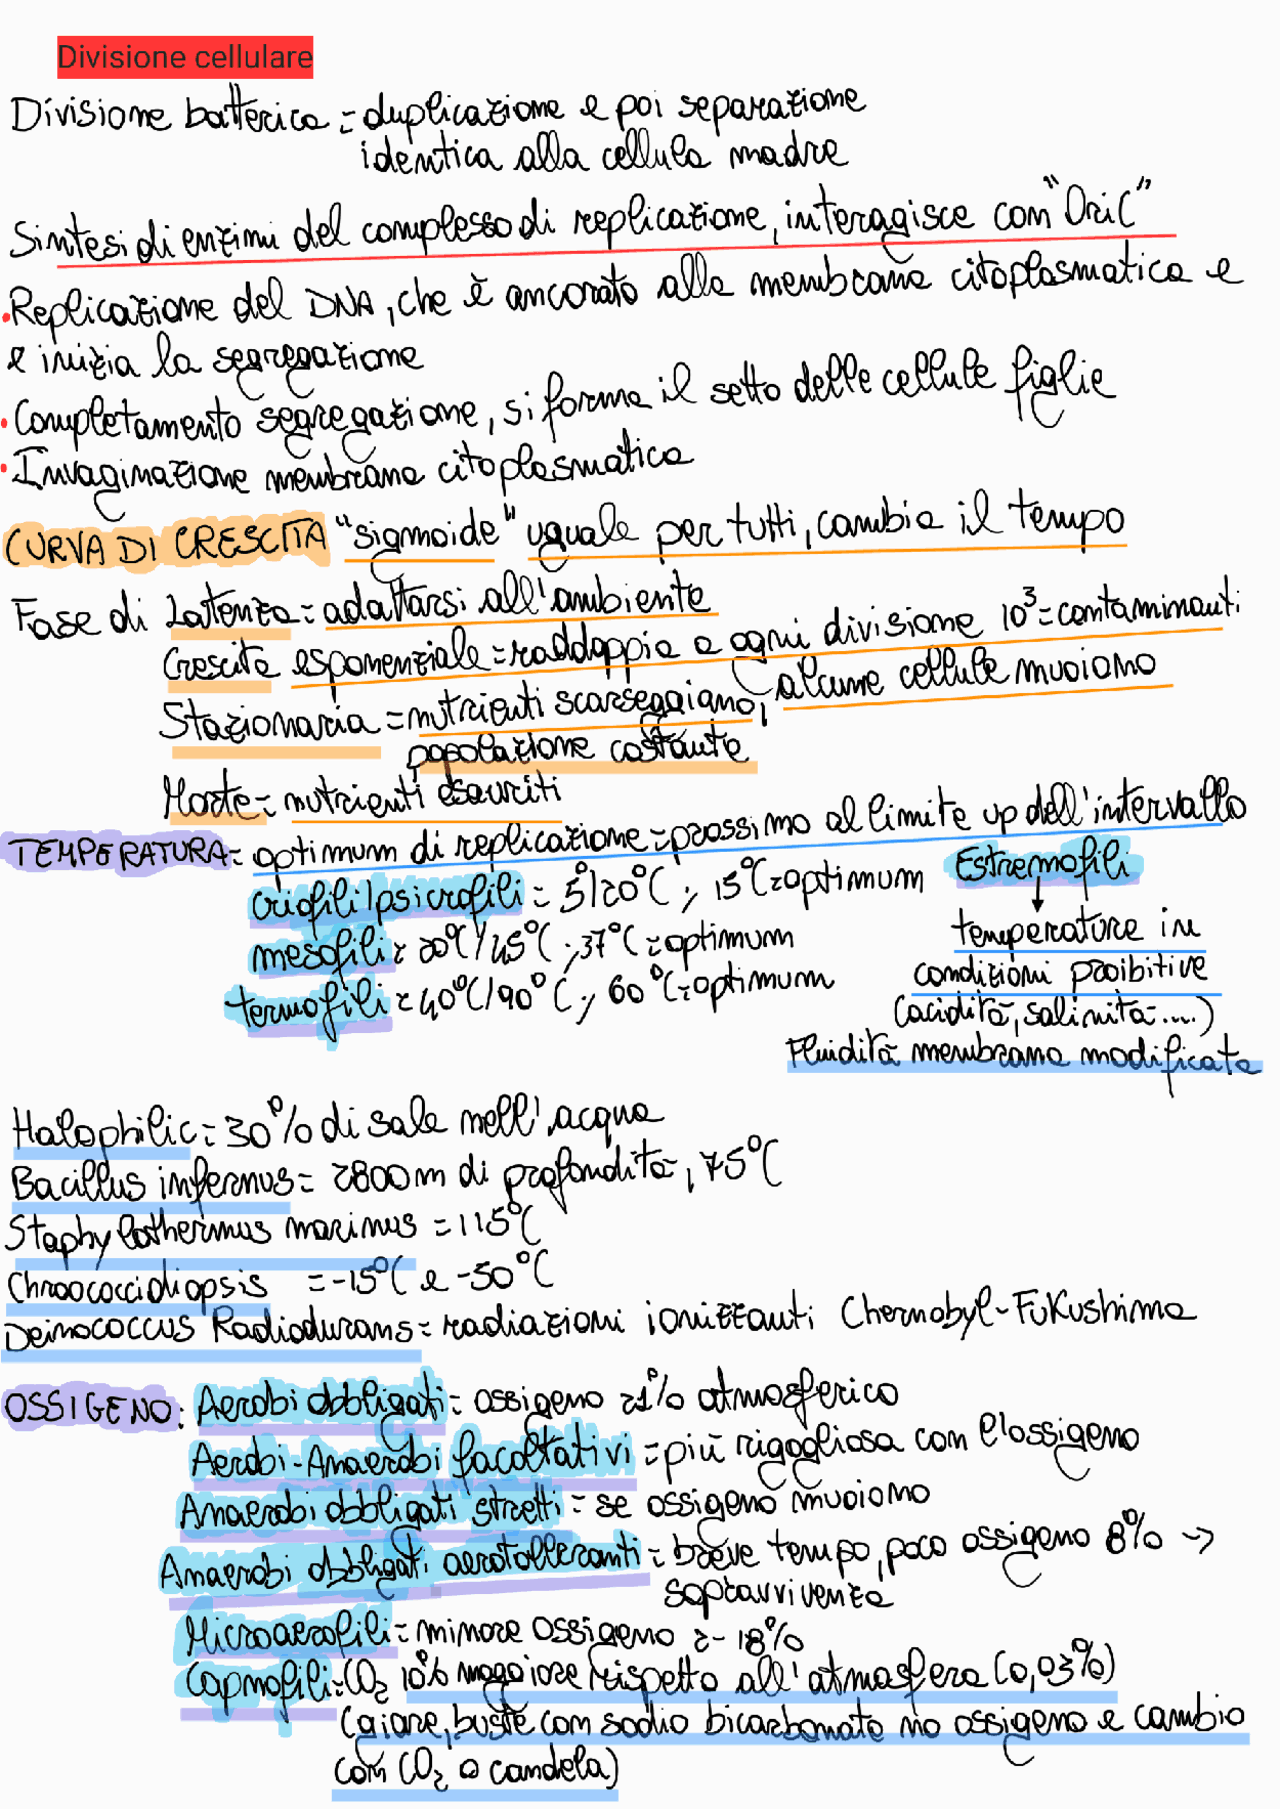 Divisione cellulare
Divisione batterica = duplicazione e poi separazione
identica alla cellula madre
Sintesi di enzimi del complesso di replicazione, interagisce con "OriC"
• Replicazione del DNA, che è ancorato alla membrana citoplasmatica e
e inizia la segregazione
• Completamento segregazione, si forma il setto delle cellule figlie
• Invaginazione membrana citoplasmatica
CURVA DI CRESCITA "sigmoide" uguale per tutti, cambia il tempo
Fase di Lattenza = adattarsi all'ambiente
Crescita esponenziale = raddoppia a ogni divisione 10³ = contaminanti
Stazionaria = nutrienti scarseggiano, alcune cellule muoiono
popolazione costante
Morte = nutrienti esauriti
TEMPERATURA = optimum di replicazione = prossimo al limite up dell'intervallo
Criofili/psicrofili = 5°/20°C, 15°C = optimum
mesofili = 20°C/45°C, 37°C = optimum
termofili = 40°C/90°C, 60°C = optimum
Estremofili
↓
temperature in
condizioni proibitive
(acidità, salinità....)
Fluidità membrana modificata
Halophilic = 30% di sale nell'acqua
Bacillus infernus = 2800m di profondità, 75°C
Staphylothermus marinus = 115°C
Chroococcidiopsis = -15°C e -50°C
Deinococcus Radiodurans = radiazioni ionizzanti Chernobyl-Fukushima
OSSIGENO: Aerobi obbligati = ossigeno 21% atmosferico
Aerobi-Anaerobi facoltativi = più rigogliosa con l'ossigeno
Anaerobi obbligati stretti = se ossigeno muoiono
Anaerobi obbligati aerotolleranti = breve tempo, poco ossigeno 8% →
sopravvivenza
Microaerofili = minore ossigeno 2-18%
Capnofili = CO₂ 10% maggiore rispetto all'atmosfera (0,03%)
(giare, buste con sodio bicarbonato no ossigeno e cambio
con CO₂ o candela)